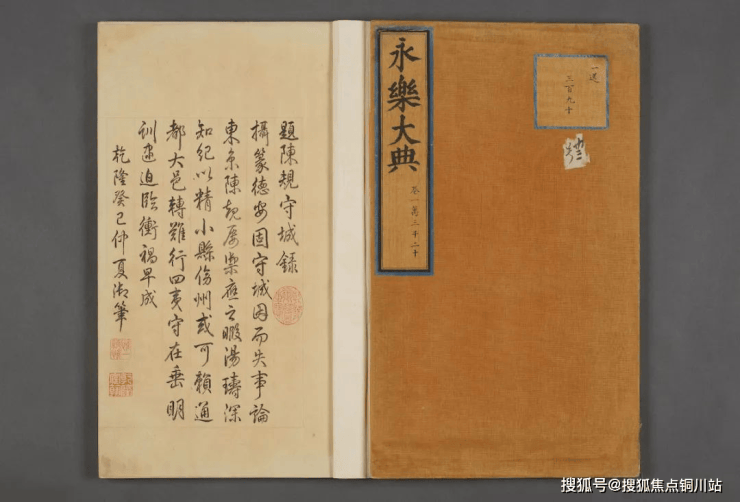 永樂大典
卷一萬三千二十
一送
三百九十
題陳規守城錄
攝篆德安固守城因而失事論
東京陳規屢禦應之暇湯璹深
知紀以精小縣傍州或可賴通
都大邑轉難行四夷守在垂明
訓逮迫臨衝禍早成
乾隆癸巳仲夏御筆
搜狐号@搜狐焦点铜川站